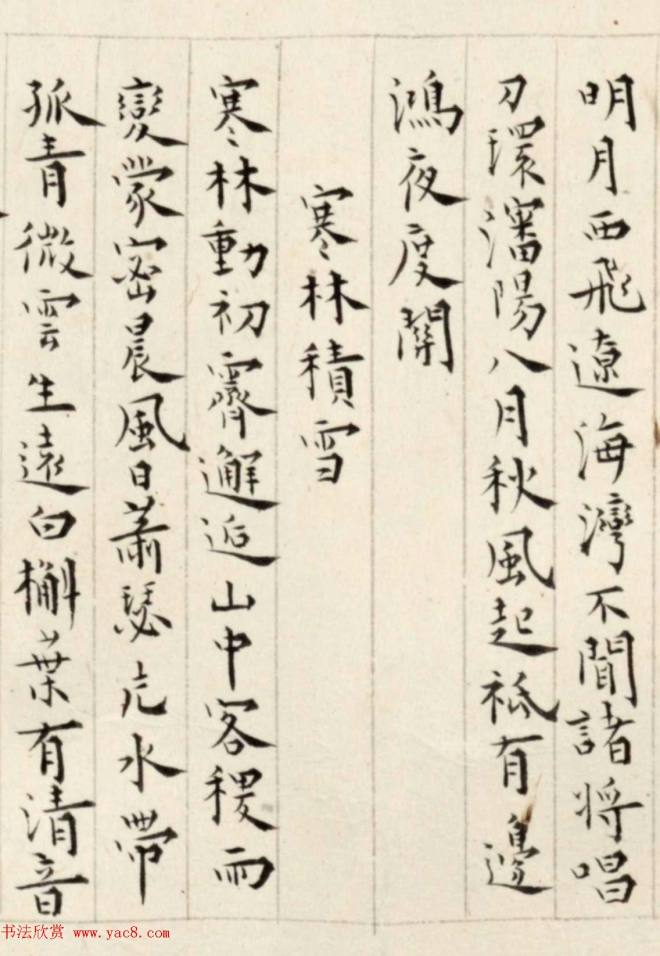 明月西飛遼海灣不聞諸將唱
刀環瀋陽八月秋風起祗有邊
鴻夜度關
寒林積雪
寒林動初霽邂逅山中客稷雨
變蒙密晨風日蕭瑟危水帶
孤青微雲生遠白槲葉有清音
书法欣赏 www.yac8.com